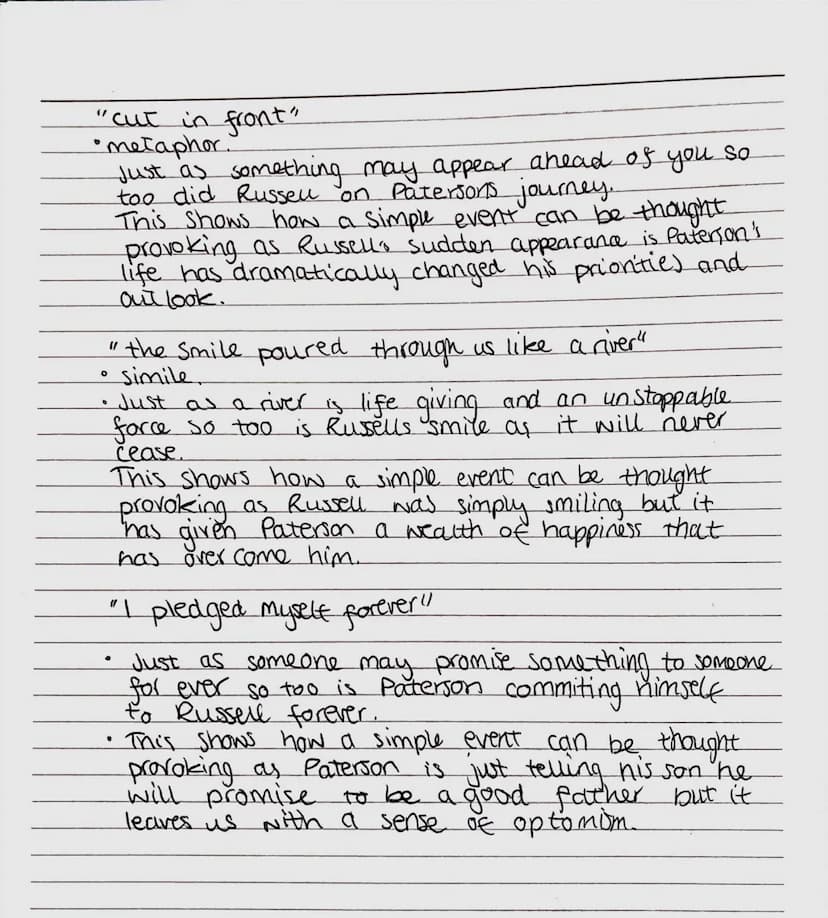 "cut in front"
• metaphor.
Just as something may appear ahead of you so
too did Russell on Paterson's journey.
This shows how a simple event can be thought
provoking as Russell's sudden appearance is Paterson's
life has dramatically changed his priorities and
outlook.
"the smile poured through us like a river"
• simile.
• Just as a river is life giving and an unstoppable
force so too is Russells smile as it will never
cease.
This shows how a simple event can be thought
provoking as Russell was simply smiling but it
has given Paterson a wealth of happiness that
has over come him.
"I pledged myself forever"
• Just as someone may promise something to someone
for ever so too is Paterson commiting himself
to Russell forever.
• This shows how a simple event can be thought
provoking as Paterson is just telling his son he
will promise to be a good father but it
leaves us with a sense of optomism.